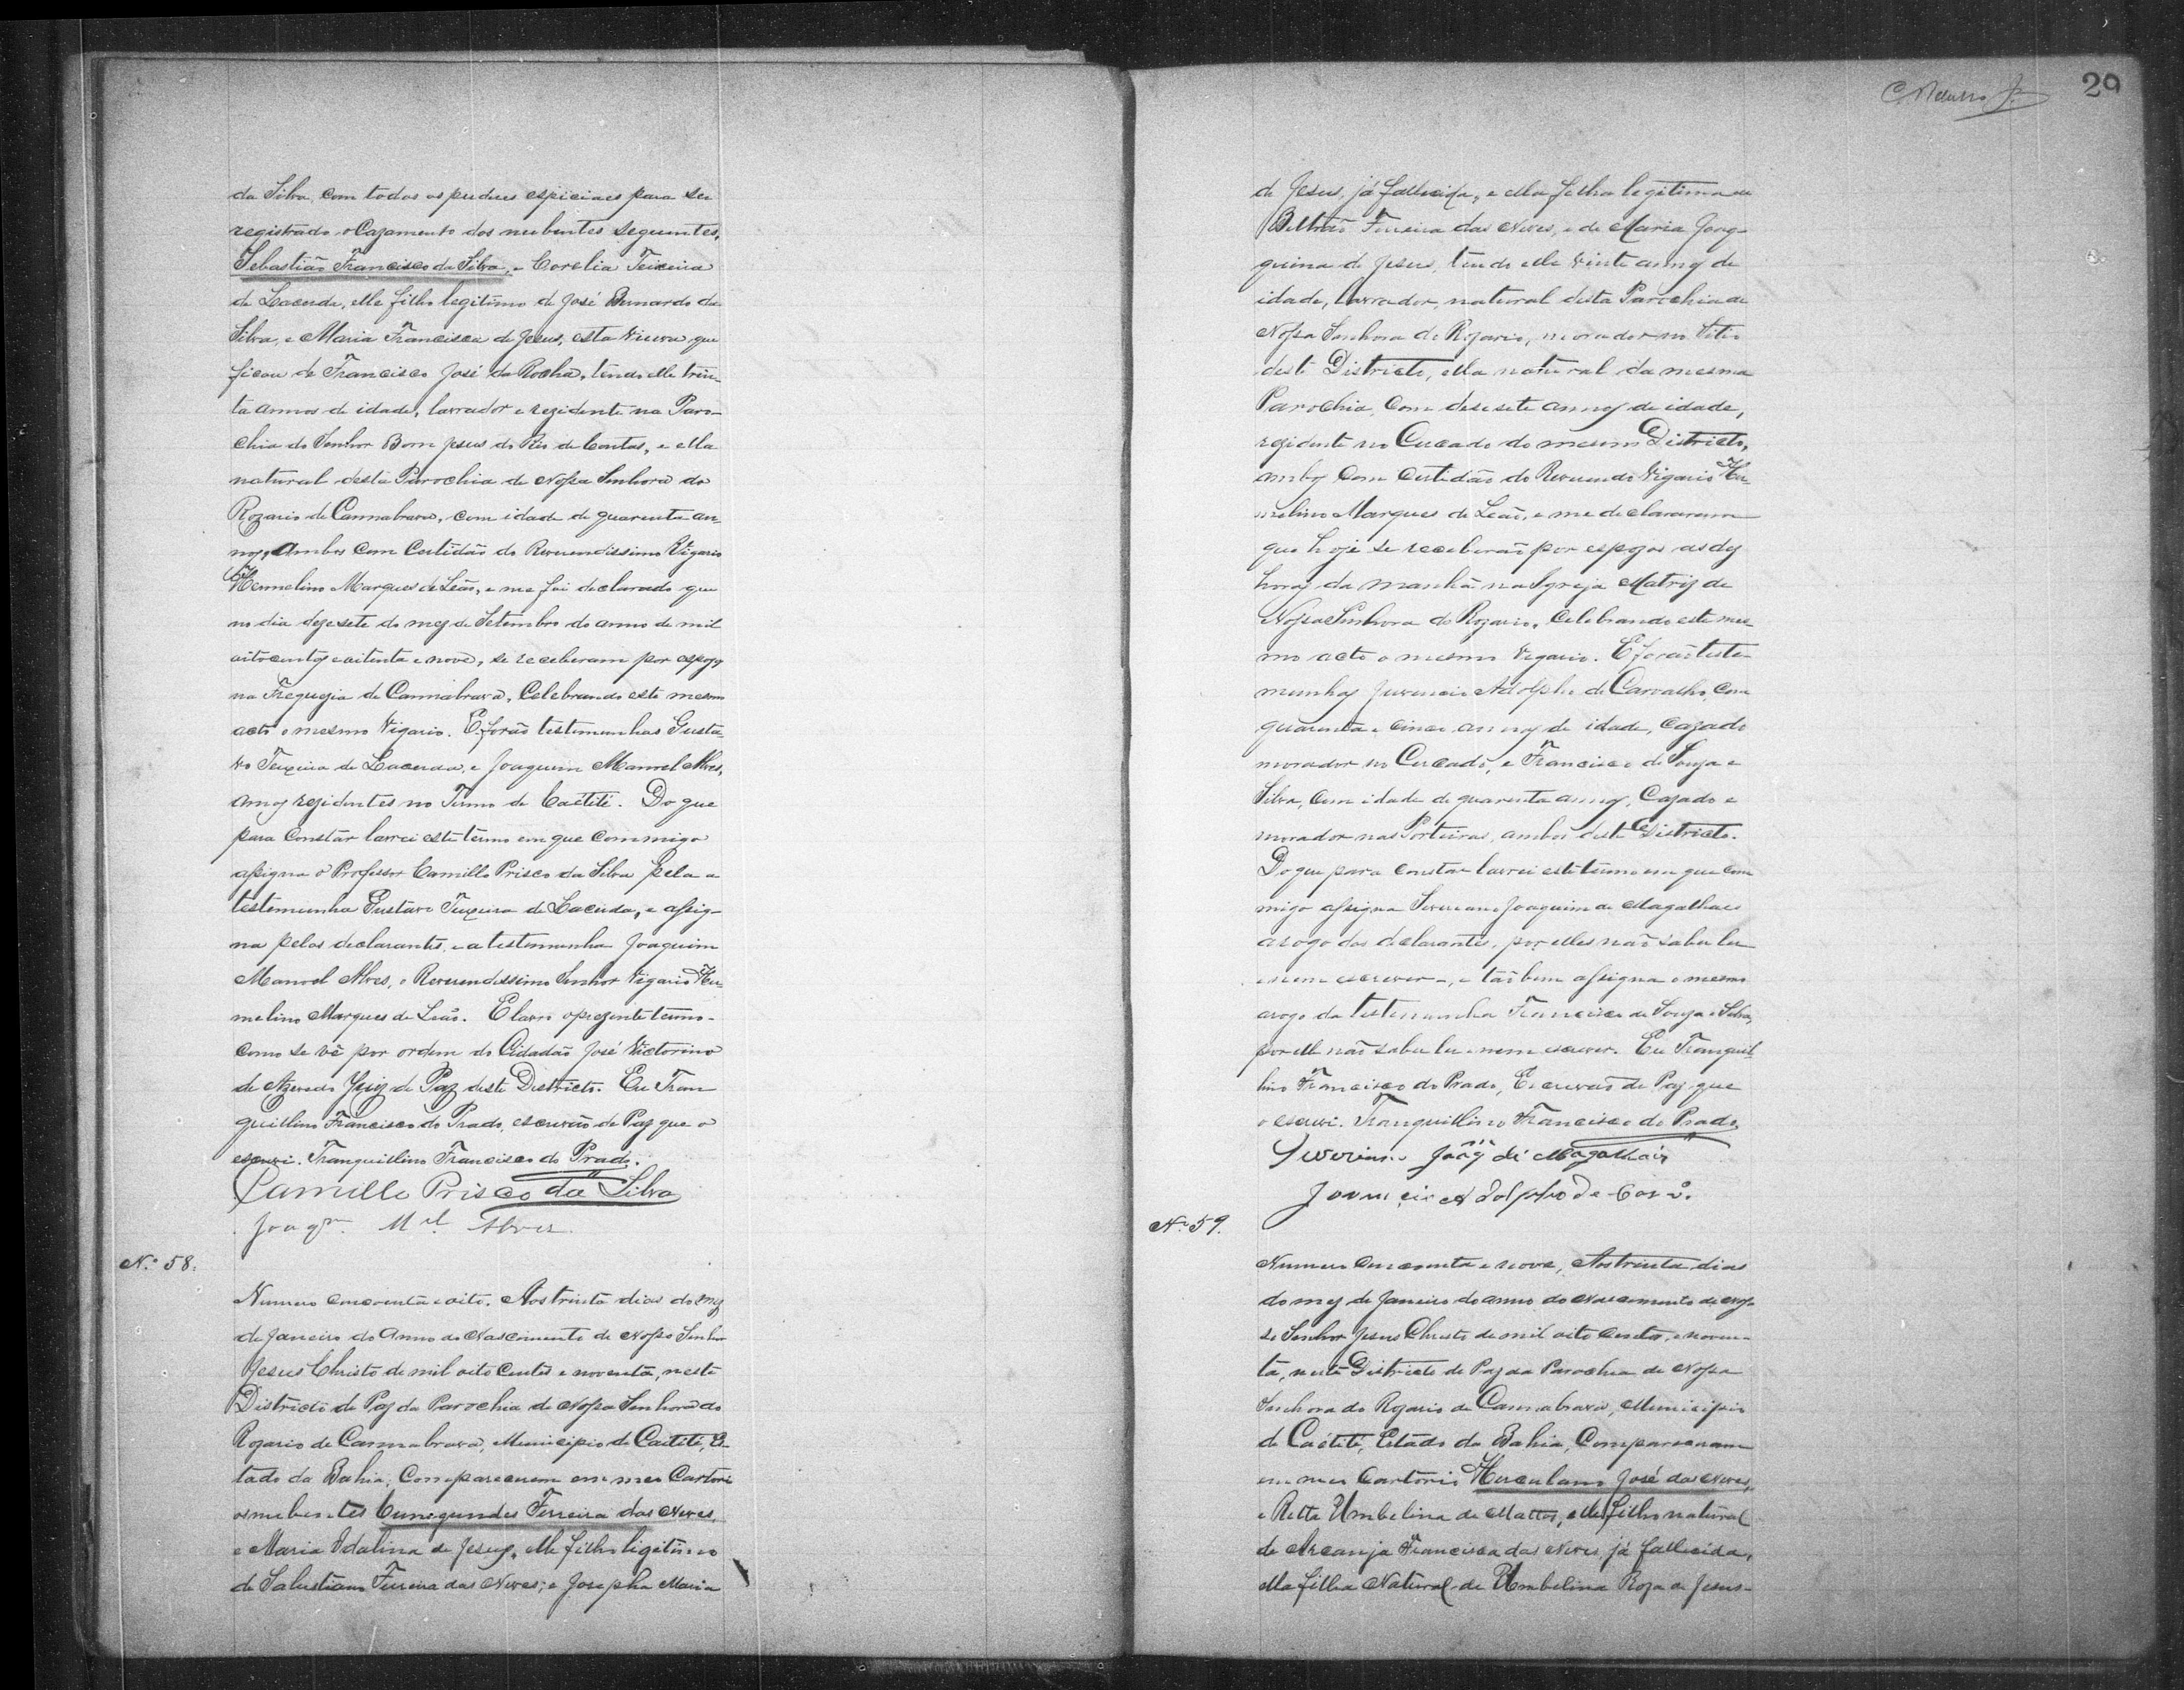 da Silva, com todos os puderes espiciaes para ser
registrado o Cazamento dos nubentes seguintes,
Sebastião Francisco da Silva, e Corelia Teixeira
de Lacerda, elle filho legitimo de José Bernardo da
Silva, e Maria Francisca de Jesus, esta Viuva que
ficou de Francisco José da Rocha, tendo elle trin-
ta annos de idade, lavrador e rezidente na Paro-
chia do Senhor Bom Jesus do Rio de Contas, e ella
natural desta Parochia de Nossa Senhora do
Rozario de Cannabrava, com idade de quarenta an-
nos, Ambos com Certidão do Reverendissimo Vigario
Hermelino Marques de Leão, e me foi declarado que
no dia dezesete do mez de Setembro do anno de mil
oitocentos e oitenta e nove, se receberam por espozos
na Freguezia de Cannabrava, Celebrando este mesmo
acto o mesmo Vigario. E forão testemunhas Gusta-
vo Teixeira de Lacerda, e Joaquim Manoel Alves,
amos rezidentes no Termo de Caétité. Do que
para Constar lavrei este termo em que commigo
assigna o Professor Camillo Prisco da Silva pela a
testemunha Gustavo Teixeira de Lacerda, e assig-
na pelos declarantes, e a testemunha Joaquim
Manoel Alves, o Reverendissimo Senhor Vigario Her-
melino Marques de Leão. E lavro o prezente termo
como se vê por ordem do Cidadão José Victorino
de Azevedo Juiz de Paz deste Districto. Eu Tran
quillino Francisco do Prado, escrivão de Paz que o
escrevi. Tranquillino Francisco do Prado.
Camillo Prisco da Silva
Joaqm. Mel. Alves
N.º 58.
Numero cincoenta e oito. Aos trinta dias do mez
de Janeiro do Anno do Nascimento de Nosso Senhor
Jesus Christo de mil oito centos e noventa, neste
Districto de Paz da Parochia de Nossa Senhora do
Rozario de Cannabrava, Municipio de Caitité, Es-
tado da Bahia, Compareceram em meu Cartorio
os nubentes Cunegundes Ferreira das Neves,
e Maria Idalina de Jesus, elle filho ligitimo
de Salustiano Ferreira das Neves, e Josepha Maria
29
de Jesus, já fallecida, e ella filha legitima de
Beltrão Ferreira das Neves, e de Maria Joaq-
quina de Jesus, tendo elle vinte annos de
idade, lavrador, natural desta Parochia de
Nossa Senhora do Rozario, morador no Sitio
deste Districto, ella natural da mesma
Parochia, com desesete annos de idade,
rezidente no Cercado do mesmo Districto,
ambos com Certidão do Reverendo Vigario Her-
melino Marques de Leão, e me declararam
que hoje se receberão por espozos as dez
horas da manhã na Igreja Matriz de
Nossa Senhora do Rozario, Celebrando este mes-
mo acto o mesmo Vigario. E forão teste-
munhas Juvencio Adolpho de Carvalho, com
quarenta e cinco annos de idade, Cazado
morador no Cercado, e Francisco de Souza e
Silva, com idade de quarenta annos, Cazado e
morador nas Porteiras, ambos deste Districto.
Do que para constar lavrei este termo em que com
migo assigna Severiano Joaquim de Magalhães
a rogo dos declarantes, por elles não saber ler
e nem escrever, e tão bem assigna o mesmo
arogo da testemunha Francisco de Souza e Silva,
por elle não saber ler e nem escrever. Eu Tranquil
lino Francisco do Prado, Escrivão de Paz que
o escrevi. Tranquillino Francisco do Prado
Severiano Joaq de Magalhães
Jouvencio Adolpho de Carvo.
N.º 59.
Numero cincoenta e nove, Aos trinta dias
do mez de Janeiro do anno do Nascimento de Nos-
so Senhor Jesus Christo de mil oito centos e noven-
ta, neste Districto de Paz da Parochia de Nossa
Senhora do Rozario de Cannabrava, Municipio
de Caétité, Estado da Bahia, Compareceram
em meu Cartorio Herculano José das Neves,
e Ritta Umbelina de Mattos, elle filho natural
de Arcanja Francisca das Neves já fallecida,
ella filha Natural de Umbelina Roza de Jesus